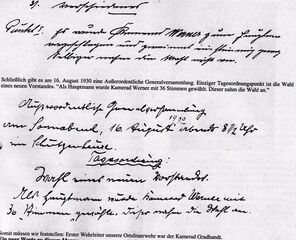 3. Verschiedenes
Punkt 1. Es wurde Kamerad Werner zum Hauptmann
vorgeschlagen und einstimmig
selbiger nahm die Wahl an.
Schließlich gibt es am 16. August 1930 eine Außerordentliche Generalversammlung. Einziger Tagesordnungspunkt ist die Wahl
eines neuen Vorstandes. "Als Hauptmann wurde Kamerad Werner mit 36 Stimmen gewählt. Dieser nahm die Wahl an."
Außerordentliche Generalversammlung
1930
am Sonnabend, 16. August abends 8½ Uhr
im Schützenhause.
Tagesordnung:
Wahl eines neuen Vorstandes.
Als Hauptmann wurde Kamerad Werner mit
36 Stimmen gewählt, dieser nahm die Wahl an.
müssen wir feststellen: Erster Wehrleiter unserer Ortsfeuerwehr war der Kamerad Gradhandt.